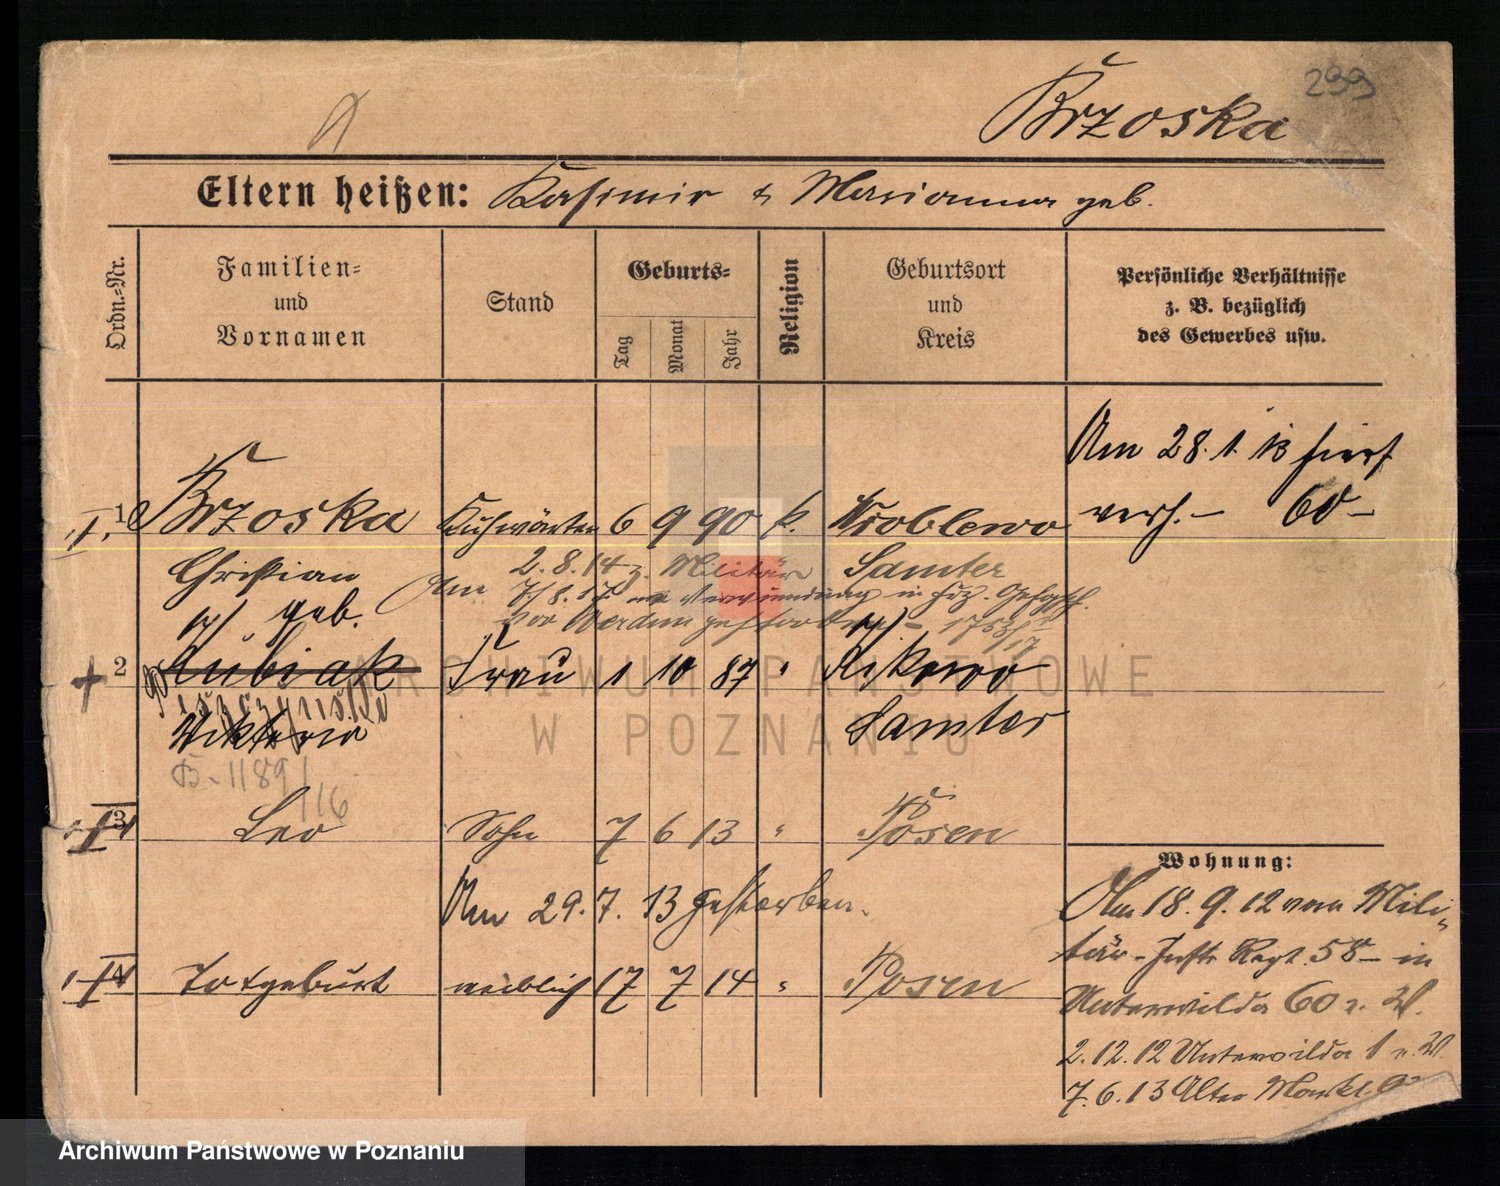 299
Brzoska
Eltern heißen: Kasimir & Marianna geb.
Ordn.-Nr.
Familien-
und
Vornamen
Stand
Geburts-
Tag
Monat
Jahr
Religion
Geburtsort
und
Kreis
Persönliche Verhältnisse
z. B. bezüglich
des Gewerbes usw.
Am 28. 1. 13 hier
verh. – 60 –
1 Brzoska 6 9 90 k. Wroblewo
Christian
2. 8. 14 z. Militär Samter
Am 7/8. 17 Verwundung in
geb. vor Verdun gestorben – 1753/17
2 Kubiak Frau 1 10 87 "
Viktoria Samter
B. 1189/16
3 Leo Sohn 7 6 13 " Posen
Am 29. 7. 13 gestorben.
4 Totgeburt weiblich 17 7 14 " Posen
Wohnung:
Am 18. 9. 12 vom Mili-
tär - Inftr Regt. 58 – in
Unterwilda 60 b. W.
2. 12. 12 Unterwilda 1
7. 6. 13 Alter Markt
ARCHIWUM PAŃSTWOWE
W POZNANIU
Archiwum Państwowe w Poznaniu